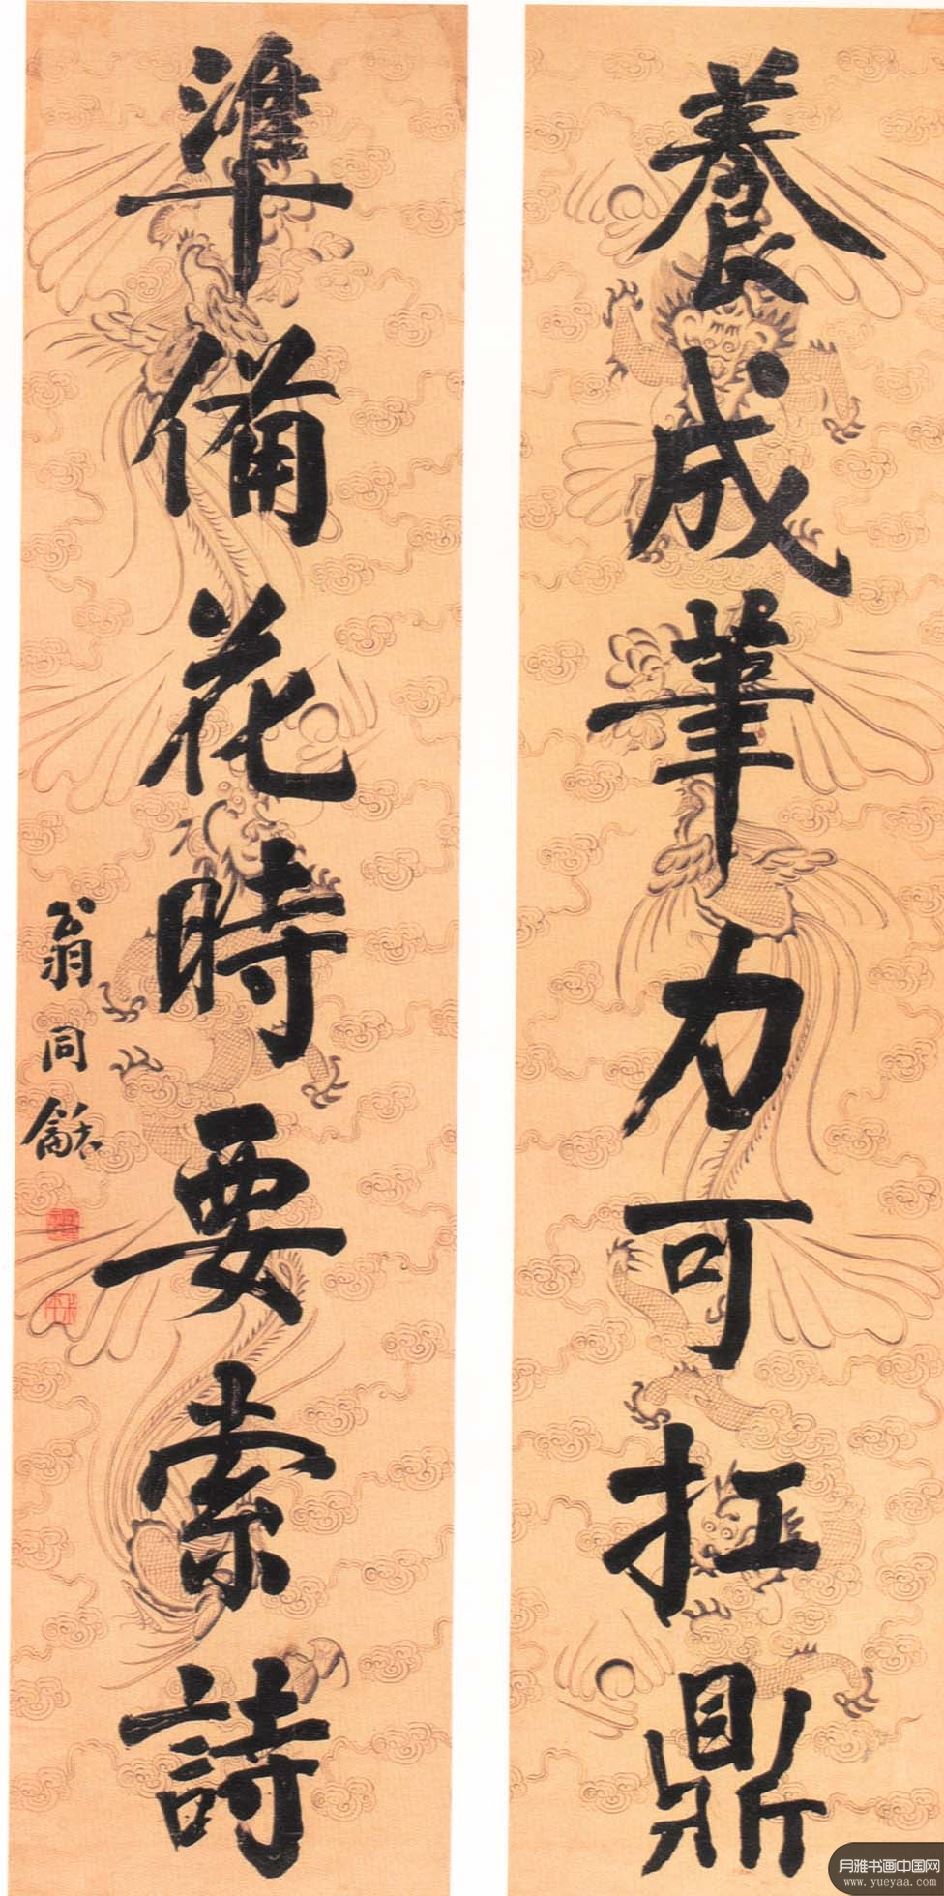 養成筆力可扛鼎
準備花時要索詩
翁同龢
月雅书画中国网
www.yueyaa.com